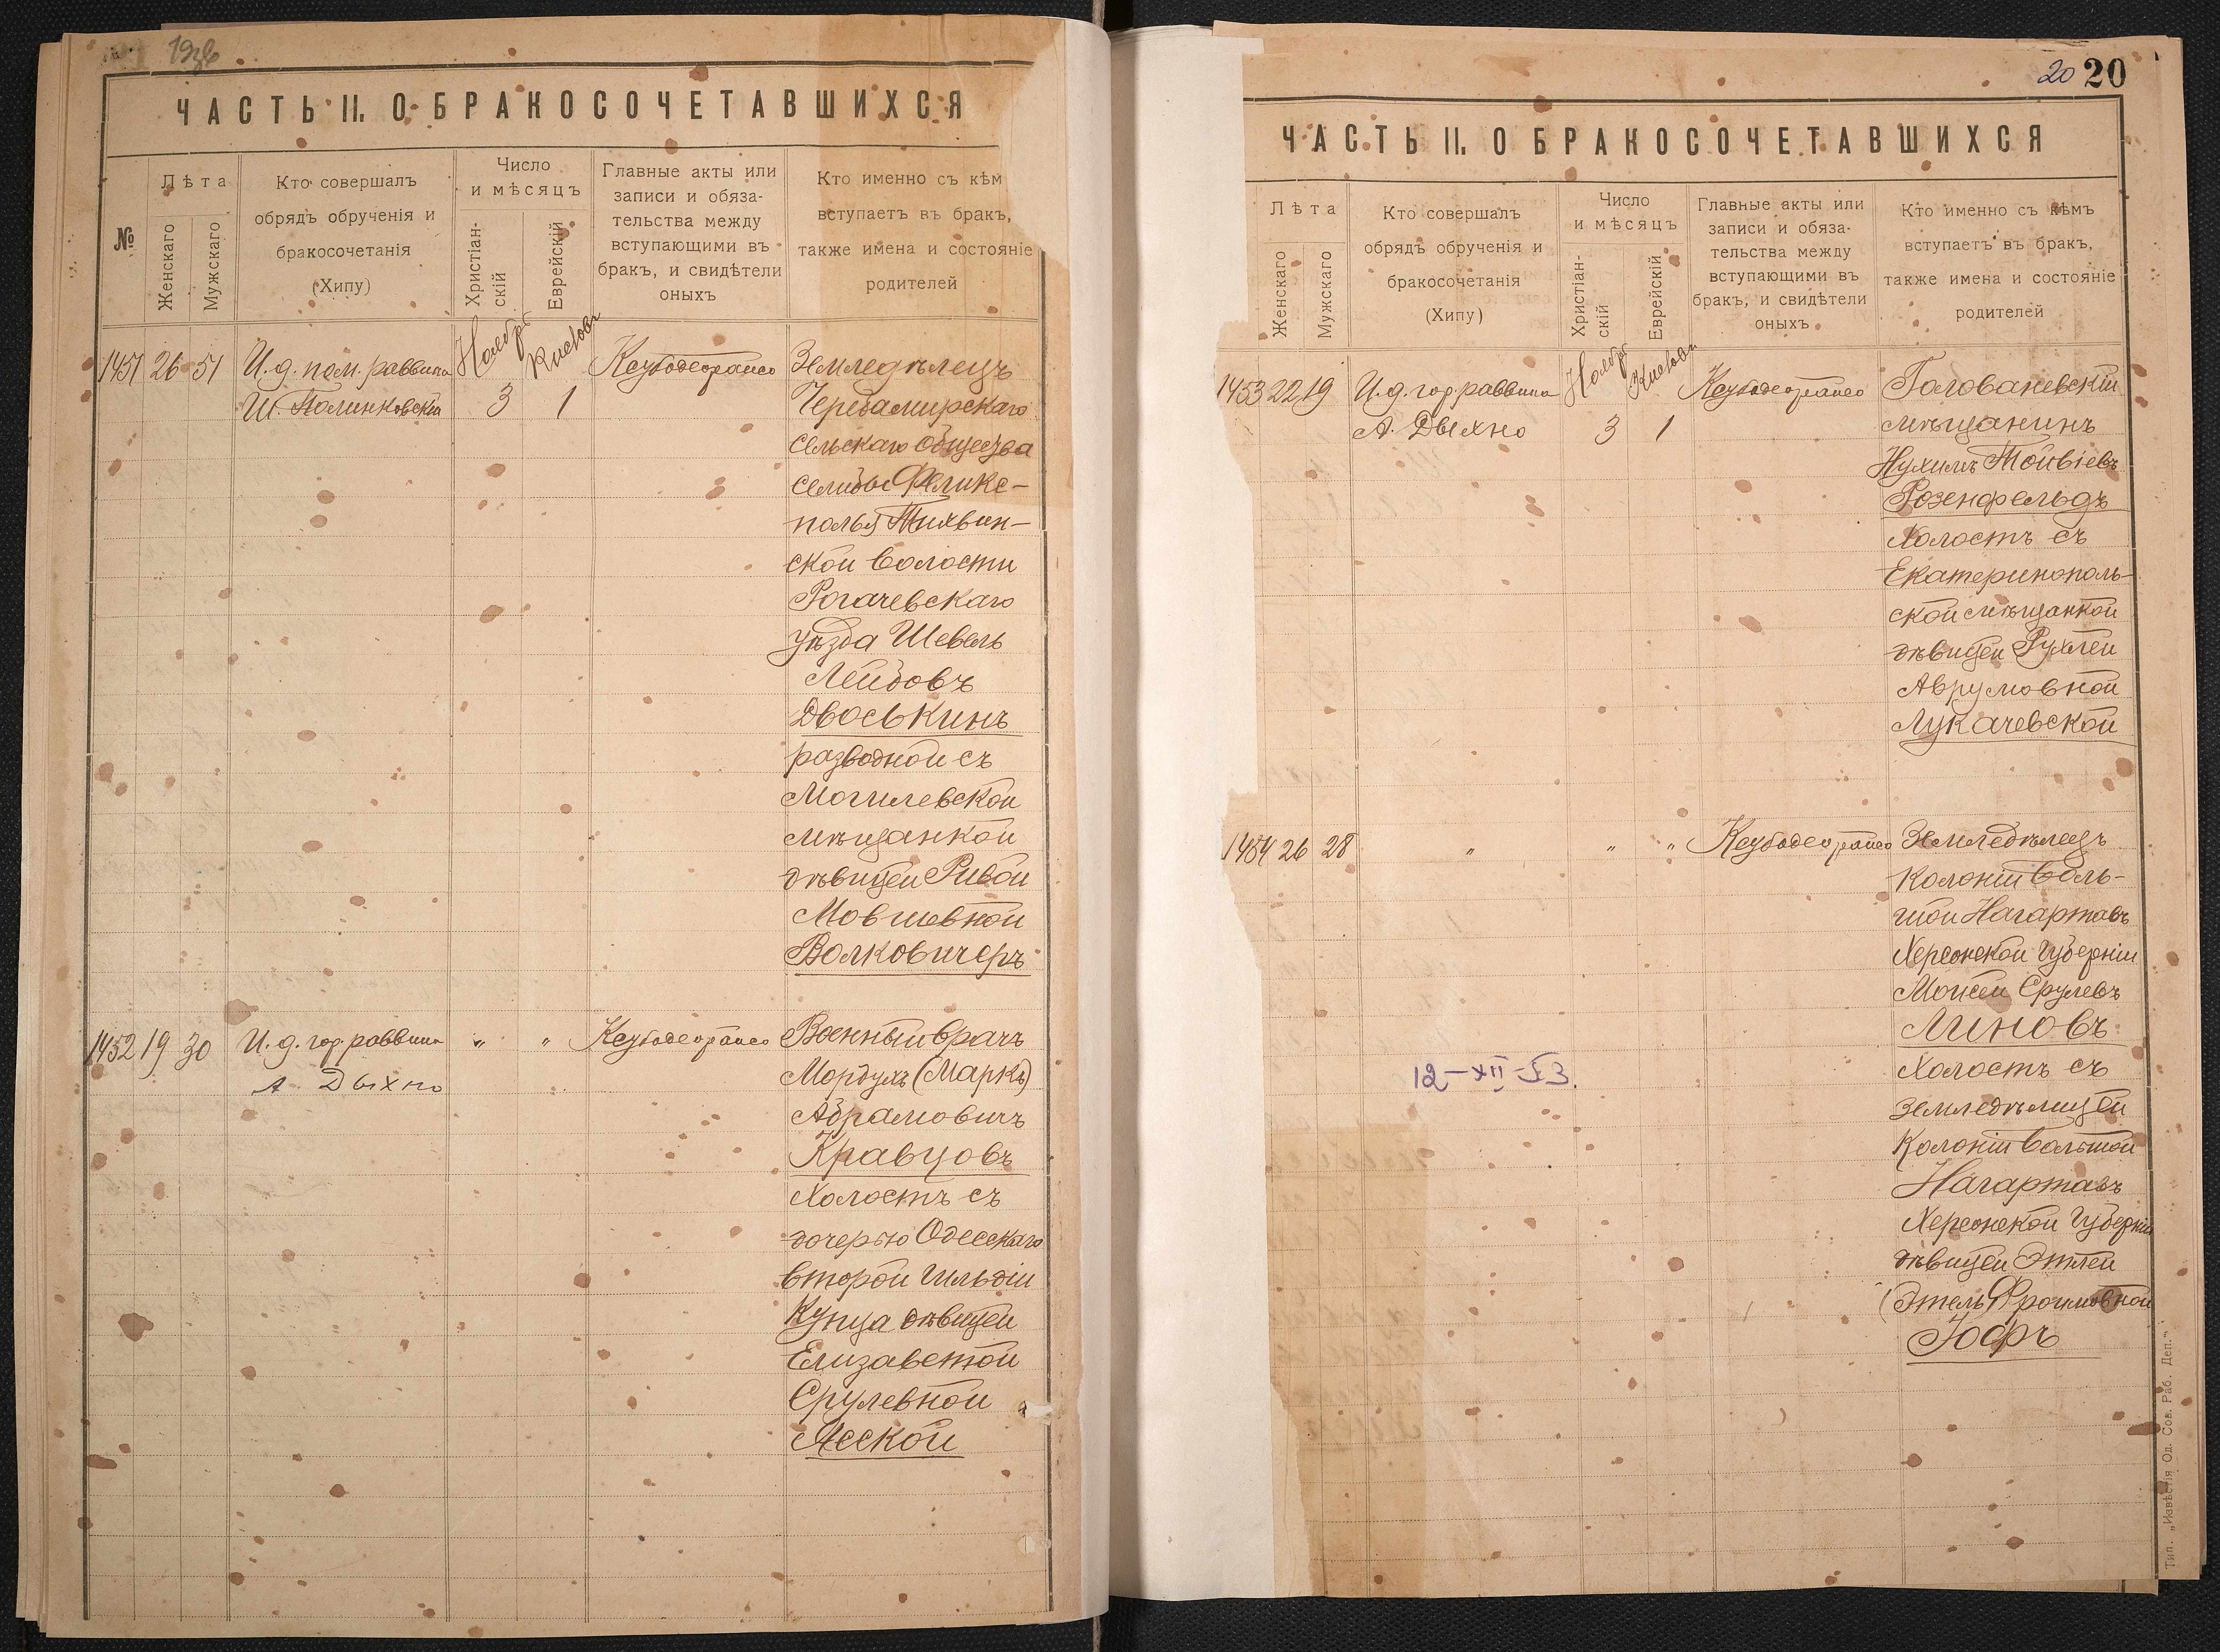 ЧАСТЬ II. О БРАКОСОЧЕТАВШИХСЯ
№
Лѣта
Женскаго
Мужскаго
Кто совершалъ
обрядъ обрученія и
бракосочетанія
(Хипу)
Число
и мѣсяцъ
Христіан-
скій
Еврейскій
Главные акты или
записи и обяза-
тельства между
вступающими въ
бракъ, и свидѣтели
оныхъ
Кто именно съ кѣм
вступаетъ въ бракъ,
также имена и состояніе
родителей
1451 26 51
И. д. пом. раввина
Ш. Полинковскій
Ноябрь
3
Кислевъ
1
Земледѣлецъ
сельскаго общества
селибы Фелик-
полья Тихвин-
ской волости
Рогачевскаго
уѣзда Шевель
Лейбовъ
Двоськинъ
разводной съ
Могилевской
мѣщанкой
дѣвицей Ривой
Мовшевной
Волковичеръ
1452 19 30
И. д. гор. раввина
А Дыхно
"
"
Военный врачъ
Мордухъ (Маркъ)
Абрамовичъ
Кравцовъ
Холостъ съ
дочерью Одесскаго
второй гильдіи
Купца дѣвицей
Елизаветой
Срулевной
Ясской
20 20
ЧАСТЬ II. О БРАКОСОЧЕТАВШИХСЯ
Лѣта
Женскаго
Мужскаго
Кто совершалъ
обрядъ обрученія и
бракосочетанія
(Хипу)
Число
и мѣсяцъ
Христіан-
скій
Еврейскій
Главные акты или
записи и обяза-
тельства между
вступающими въ
бракъ, и свидѣтели
оныхъ
Кто именно съ кѣмъ
вступаетъ въ бракъ,
также имена и состояніе
родителей
1453 22 19
И. д. гор. раввина
А. Дыхно
Ноябрь
3
Кислевъ
1
Голованевскій
мѣщанинъ
Нухимъ Тойвіевъ
Розенфельдъ
Холостъ съ
Екатеринополь-
ской мѣщанкой
дѣвицей Рухлей
Аврумовной
Лукачевской
1454 26 28
"
"
"
Земледѣлецъ
Колоніи боль-
шой Нагартавъ
Херсонской губерніи
Мойсей Срулевъ
Линовъ
Холостъ съ
земледѣлицей
Колоніи большой
Нагартавъ
Херсонской губерніи
дѣвицей Этлей
(Этель Фроимовной
Іофъ
12-XII-53.
Тип. „Извѣстія Од. Сов. Раб. Деп."